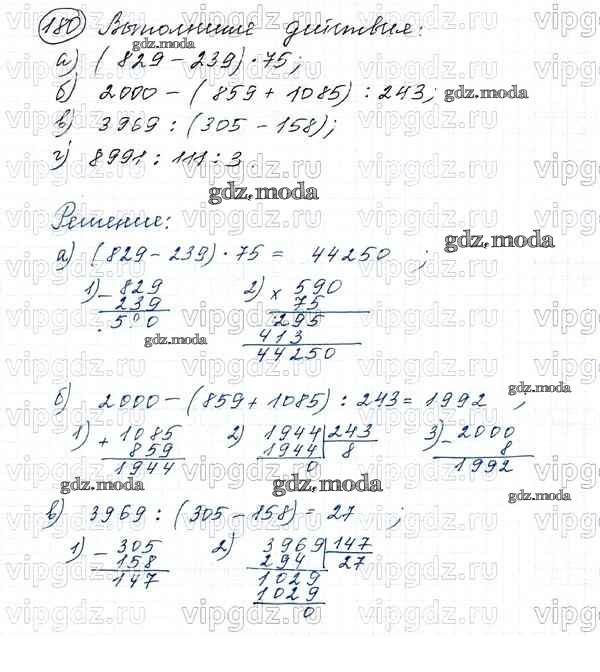 180 Выполните действия:
а) (829 - 239) · 75;
б) 2000 - (859 + 1085) : 243;
в) 3969 : (305 - 158);
г) 8991 : 111 : 3.
Решение:
а) (829 - 239) · 75 = 44250 ;
1) - 829
239
590
2) × 590
75
295
413
44250
б) 2000 - (859 + 1085) : 243 = 1992 ;
1) + 1085
859
1944
2) 1944 | 243
1944 | 8
0
3) - 2000
8
1992
в) 3969 : (305 - 158) = 27 ;
1) - 305
158
147
2) 3969 | 147
294 | 27
1029
1029
0
gdz.moda
vipgdz.ru